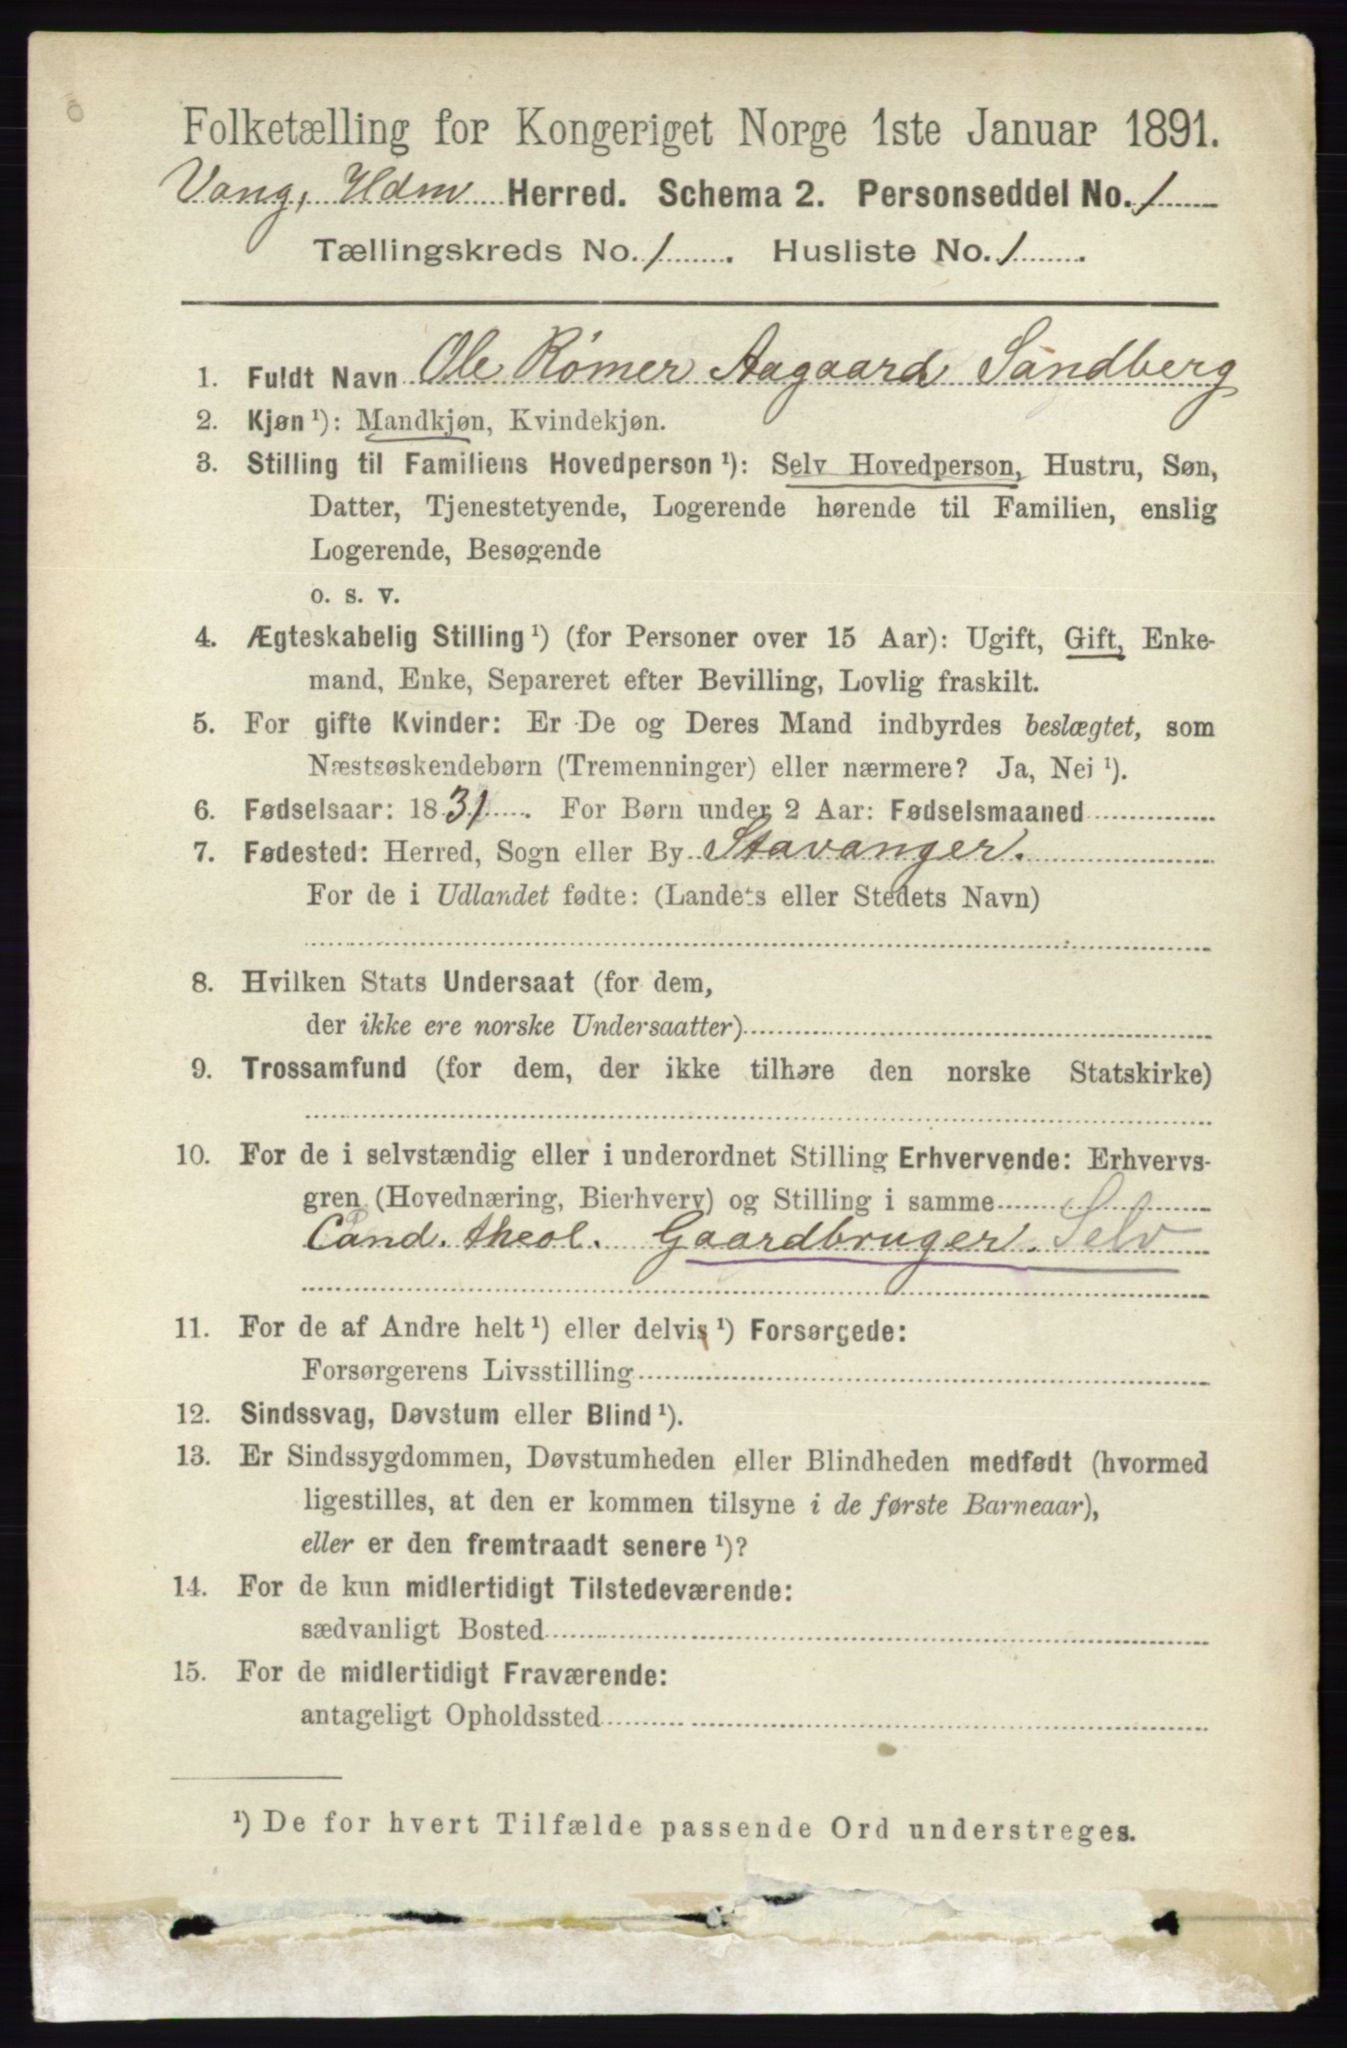 Folketælling for Kongeriget Norge 1ste Januar 1891.
Vang, Hdm Herred. Schema 2. Personseddel No. 1
Tællingskreds No. 1. Husliste No. 1.
1. Fuldt Navn Ole Rømer Aagaard Sandberg
2. Kjøn ¹): Mandkjøn, Kvindekjøn.
3. Stilling til Familiens Hovedperson ¹): Selv Hovedperson, Hustru, Søn,
Datter, Tjenestetyende, Logerende hørende til Familien, enslig
Logerende, Besøgende
o. s. v.
4. Ægteskabelig Stilling ¹) (for Personer over 15 Aar): Ugift, Gift, Enke-
mand, Enke, Separeret efter Bevilling, Lovlig fraskilt.
5. For gifte Kvinder: Er De og Deres Mand indbyrdes beslægtet, som
Næstsøskendebørn (Tremenninger) eller nærmere? Ja, Nei ¹).
6. Fødselsaar: 1831. For Børn under 2 Aar: Fødselsmaaned
7. Fødested: Herred, Sogn eller By Stavanger.
For de i Udlandet fødte: (Landets eller Stedets Navn)
8. Hvilken Stats Undersaat (for dem,
der ikke ere norske Undersaatter)
9. Trossamfund (for dem, der ikke tilhøre den norske Statskirke)
10. For de i selvstændig eller i underordnet Stilling Erhvervende: Erhvervs-
gren (Hovednæring, Bierhverv) og Stilling i samme Selv
Cand. theol. Gaardbruger. Selv
11. For de af Andre helt ¹) eller delvis ¹) Forsørgede:
Forsørgerens Livsstilling
12. Sindssvag, Døvstum eller Blind ¹).
13. Er Sindssygdommen, Døvstumheden eller Blindheden medfødt (hvormed
ligestilles, at den er kommen tilsyne i de første Barneaar),
eller er den fremtraadt senere ¹)?
14. For de kun midlertidigt Tilstedeværende:
sædvanligt Bosted
15. For de midlertidigt Fraværende:
antageligt Opholdssted
¹) De for hvert Tilfælde passende Ord understreges.